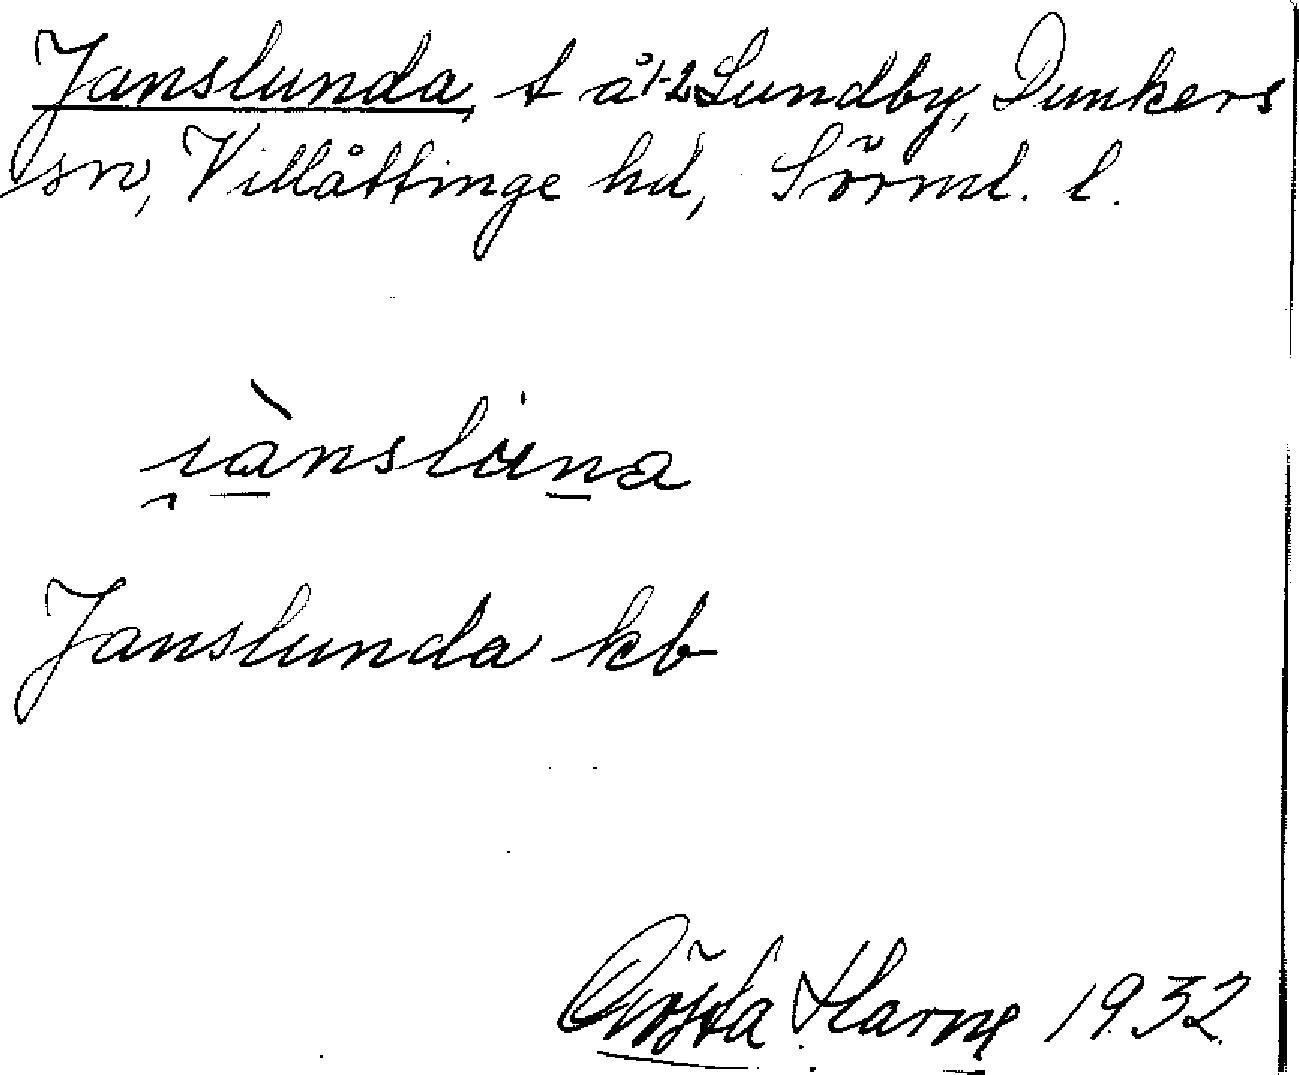 Janslunda, t å 1-2 Lundby, Dunkers
sn, Villåttinge hd, Sörml. l.
jànslúna
Janslunda kb
Gösta Harne 1932